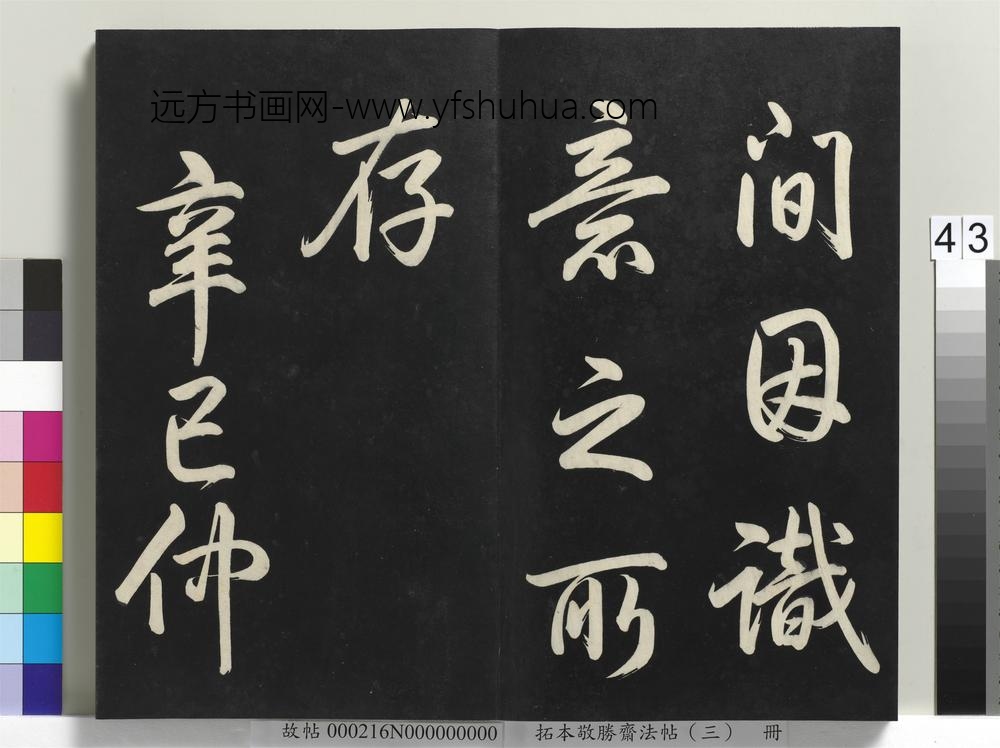 間因識
意之所
存
辛巳仲
远方书画网-www.yfshuhua.com
43
故帖 000216N000000000 拓本敬勝齋法帖(三) 冊